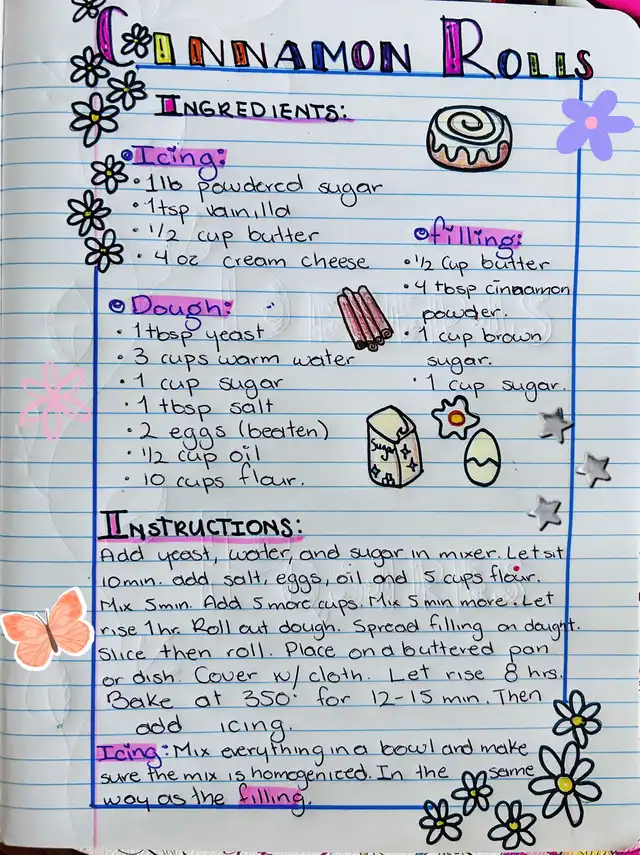 CINNAMON ROLLS
INGREDIENTS:
Icing:
• 1lb powdered sugar
• 1tsp vainilla
• 1/2 cup butter
• 4 oz cream cheese
filling:
• 1/2 Cup butter
• 4 tbsp cinnamon
powder.
• 1 cup brown
sugar.
• 1 cup sugar.
Dough:
• 1 tbsp yeast
• 3 cups warm water
• 1 cup sugar
• 1 tbsp salt
• 2 eggs (beaten)
• 1/2 cup oil
• 10 cups flour.
Sugar
INSTRUCTIONS:
Add yeast, water, and sugar in mixer. Let sit
10min. add, salt, eggs, oil and 5 cups flour.
Mix 5min. Add 5 more cups. Mix 5 min more. Let
rise 1hr. Roll out dough. Spread filling on dought.
Slice then roll. Place on a buttered pan
or dish. Cover w/ cloth. Let rise 8 hrs.
Bake at 350° for 12-15 min. Then
add icing.
Icing: Mix everything in a bowl and make
sure the mix is homogeniced. In the same
way as the filling.